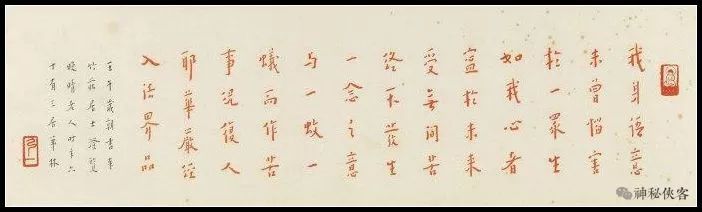 我身語意
未曾惱害
於一眾生
如我心者
寧於未來
受無間苦
終不發生
一念之意
与一蚊一
蟻而作苦
事況復人
耶華嚴經
入法界品
壬午歲朝書奉
竹莊居士澄覽
晚晴老人時年六
十有三居林
神秘侠客